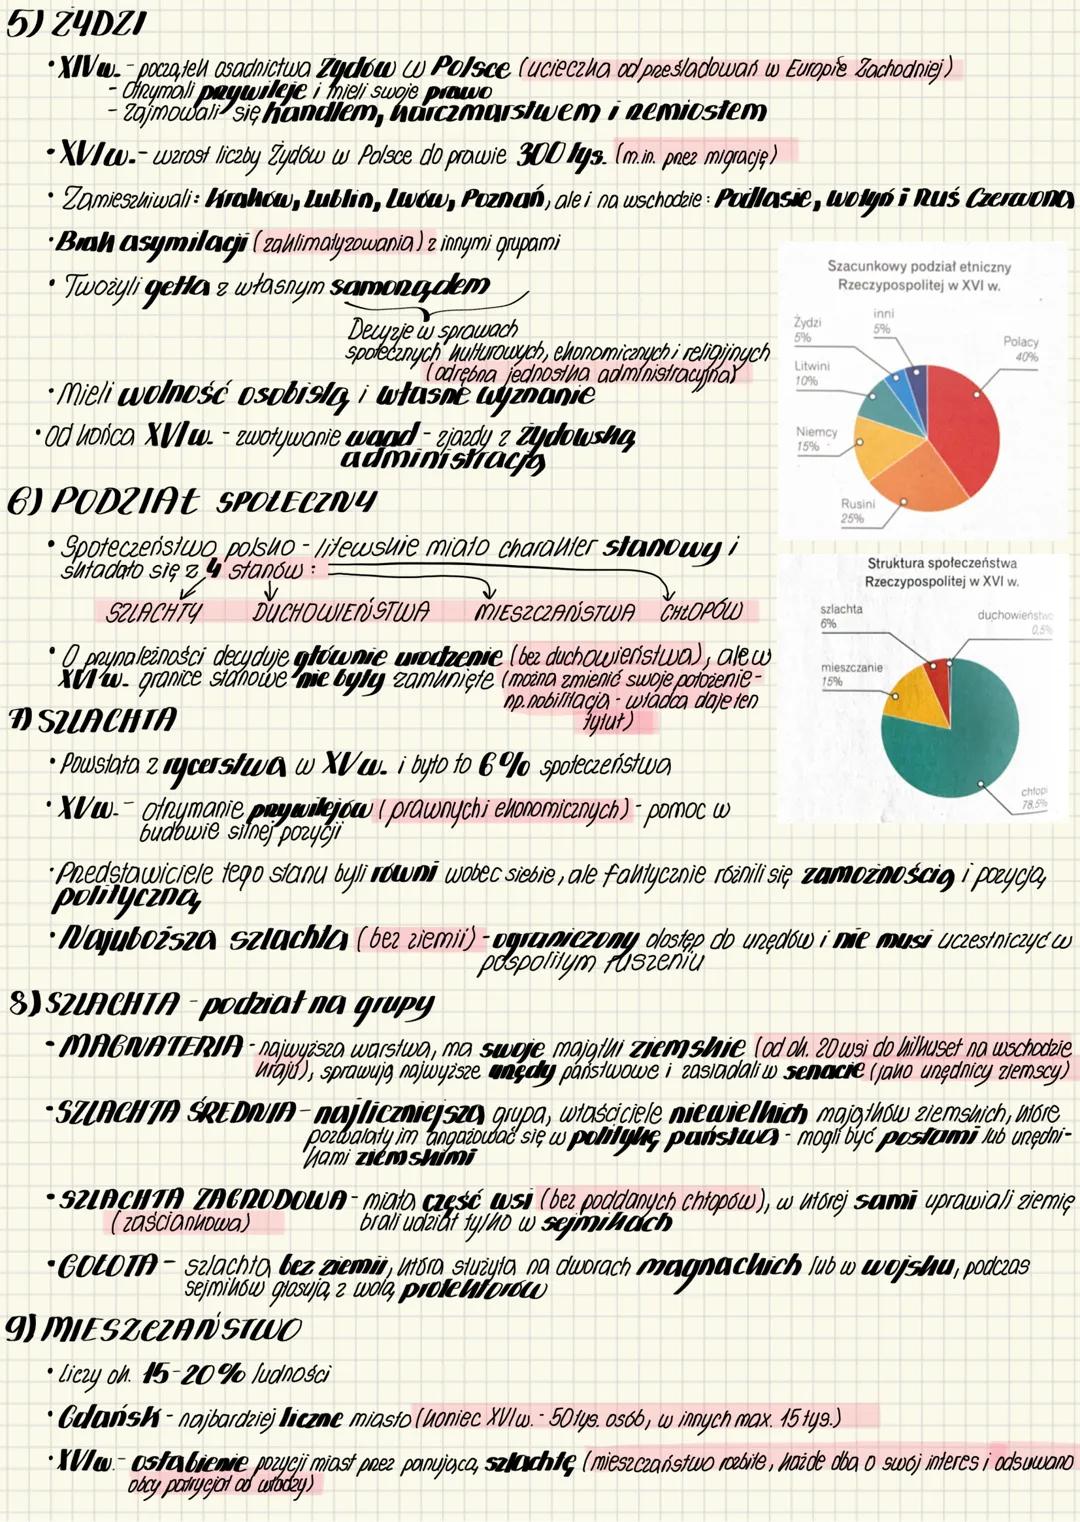 5) ŻYDZI
• XIV w. - początek osadnictwa Żydów w Polsce (ucieczka od prześladowań w Europie Zachodniej)
- Otrzymali przywileje i mieli swoje prawo
- Zajmowali się handlem, karczmarstwem i rzemiosłem
• XVI w. - wzrost liczby Żydów w Polsce do prawie 300 tys. (m.in. przez migrację)
• Zamieszkiwali: Kraków, Lublin, Lwów, Poznań, ale i na wschodzie: Podlasie, Wołyń i Ruś Czerwona
• Brak asymilacji (zaklimatyzowania) z innymi grupami
• Twożyli getta z własnym samorządem
Decyzje w sprawach
społecznych kulturowych, ekonomicznych i religijnych
(odrębna jednostka administracyjna)
• Mieli wolność osobistą i własne wyznanie
• Od końca XVI w. - zwoływanie waad - zjazdy z żydowską
administracją
Szacunkowy podział etniczny
Rzeczypospolitej w XVI w.
Żydzi
5%
inni
5%
Polacy
40%
Litwini
10%
Niemcy
15%
Rusini
25%
6) PODZIAŁ SPOŁECZNY
• Społeczeństwo polsko - litewskie miało charakter stanowy i
składało się z 4 stanów:
SZLACHTY DUCHOWIEŃSTWA MIESZCZAŃSTWA CHŁOPÓW
• O przynależności decyduje głównie urodzenie (bez duchowieństwa), ale w
XVI w. granice stanowe nie były zamknięte (można zmienić swoje położenie -
np. nobilitacja - władca daje ten
tytuł)
Struktura społeczeństwa
Rzeczypospolitej w XVI w.
szlachta
6%
duchowieństwo
0,5%
mieszczanie
15%
chłopi
78,5%
7) SZLACHTA
• Powstała z rycerstwa w XV w. i było to 6% społeczeństwa
• XV w. - otrzymanie przywilejów (prawnych i ekonomicznych) - pomoc w
budowie silnej pozycji
• Przedstawiciele tego stanu byli równi wobec siebie, ale faktycznie różnili się zamożnością i pozycją
polityczną
• Najuboższa szlachta (bez ziemii) - ograniczony dostęp do urzędów i nie musi uczestniczyć w
pospolitym ruszeniu
8) SZLACHTA - podział na grupy
• MAGNATERIA - najwyższa warstwa, ma swoje majątki ziemskie (od ok. 20 wsi do kilkuset na wschodzie
kraju), sprawują najwyższe urzędy państwowe i zasiadali w senacie (jako urzędnicy ziemscy)
• SZLACHTA ŚREDNIA - najliczniejsza grupa, właściciele niewielkich majątków ziemskich, które
pozwalały im angażować się w politykę państwa - mogli być posłami lub urzędni-
kami ziemskimi
• SZLACHTA ZAGRODOWA - miała część wsi (bez poddanych chłopów), w której sami uprawiali ziemię
(zaściankowa) brali udział tylko w sejmikach
• GOŁOTA - szlachta bez ziemii, która służyła na dworach magnackich lub w wojsku, podczas
sejmików głosują z wolą protektorów
9) MIESZCZAŃSTWO
• Liczy ok. 15-20% ludności
• Gdańsk - najbardziej liczne miasto (koniec XVI w. - 50 tys. osób, w innych max. 15 tys.)
• XVI w. - osłabienie pozycji miast przez panującą szlachtę (mieszczaństwo rozbite, każde dba o swój interes i odsuwano
obcy patrycjat od władzy)